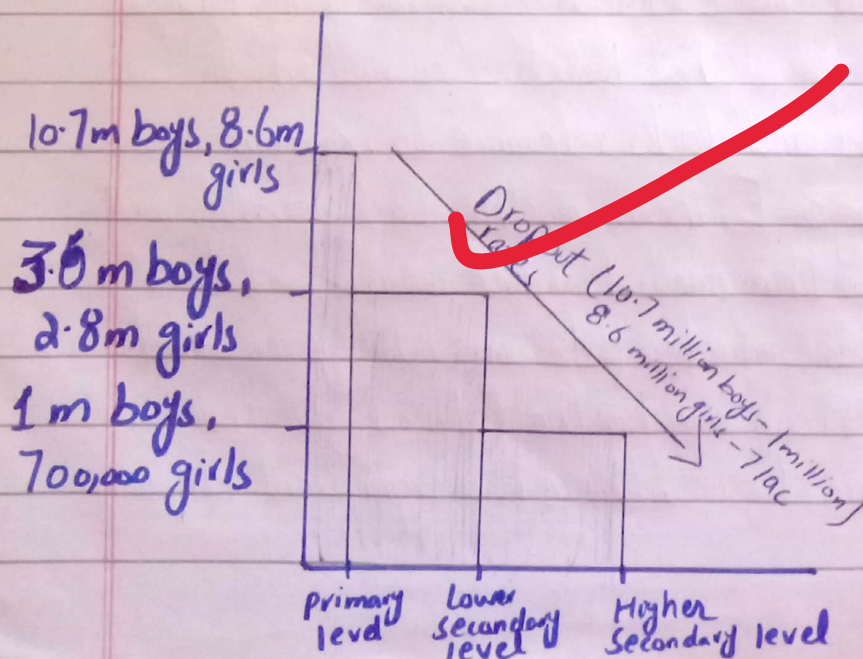 10.7m boys, 8.6m
girls
3.6 m boys,
2.8m girls
1 m boys,
700,000 girls
Dropout (10.7 million boys - 1 million)
rates
8.6 million girls - 7 lac
primary
level
Lower
secondary
level
Higher
secondary level